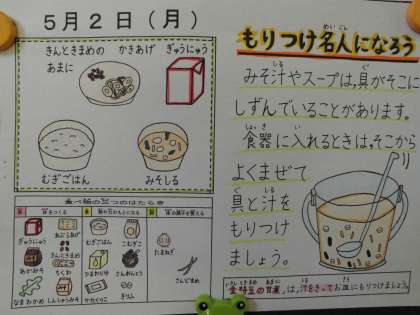 5月2日(月)
きんときまめの かきあげ ぎゅうにゅう
あまに
むぎごはん みそしる
食べ物の三つのはたらき
赤 体をつくる
ぎゅうにゅう あぶらあげ むぎごはん こむぎこ たまねぎ
あかみそ ちくわ ひまわりゆ さんおんとう さんどまめ
なまわかめ しんしゅうみそ やたくりこ きりん
もりつけ名人になろう
めいじん
みそ汁やスープは、具がそこに
しずんでいることがあります。
食器に入れるときは、そこから
よくまぜて
具と汁を
もりつけ
ましょう。
金時豆の甘煮は、汁をきってお皿にもりつけましょう。